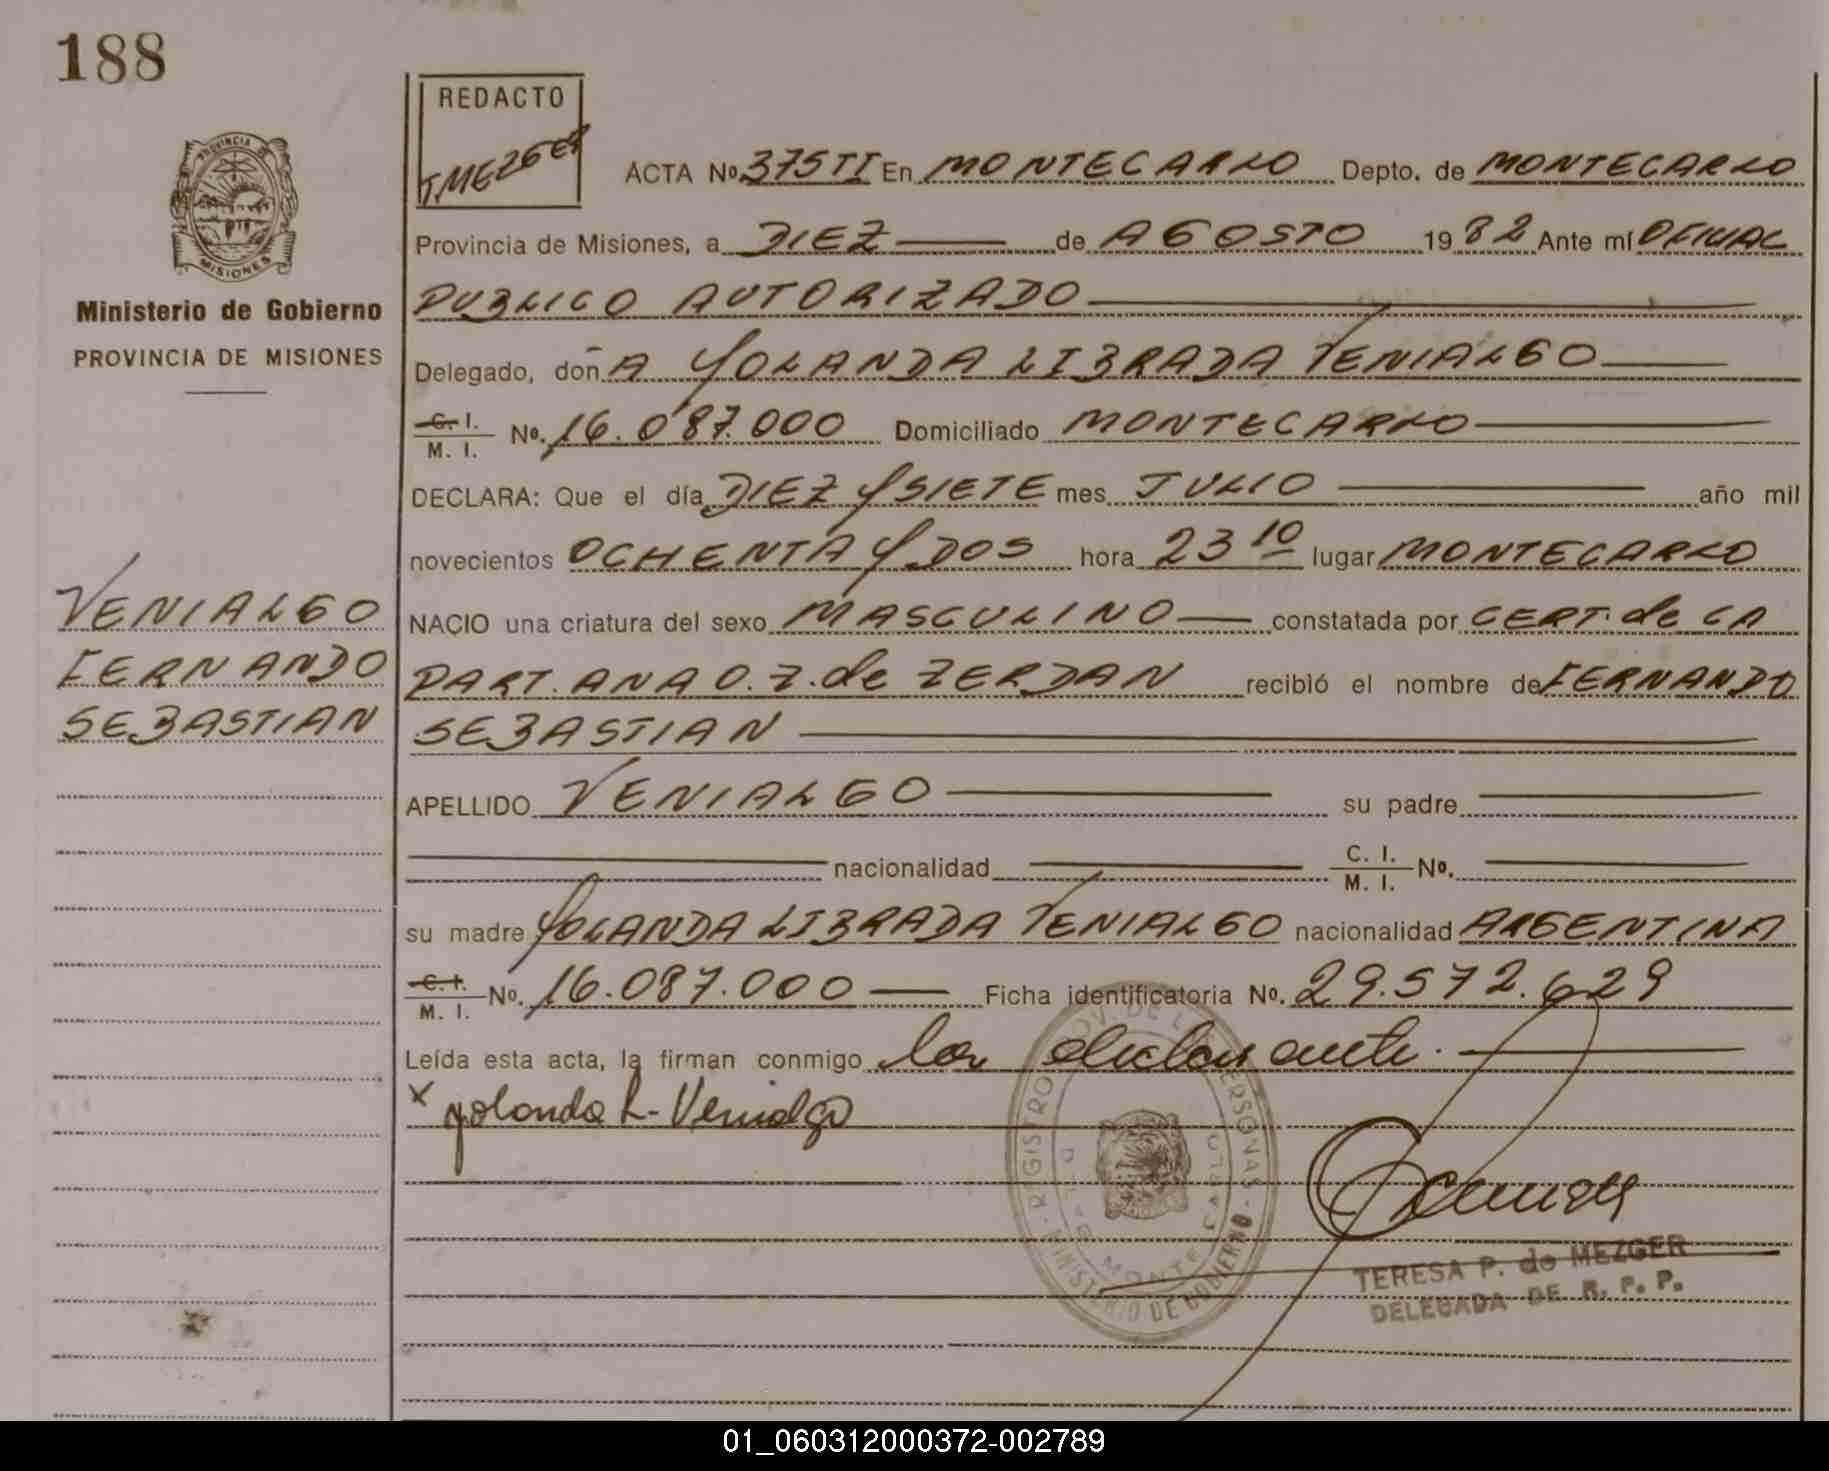 188
REDACTO
T. MEZGER
PROVINCIA DE
MISIONES
Ministerio de Gobierno
PROVINCIA DE MISIONES
ACTA Nº 375TI En MONTECARLO Depto. de MONTECARLO
Provincia de Misiones, a DIEZ de AGOSTO 1982 Ante mí OFICIAL
PUBLICO AUTORIZADO
Delegado, doñA YOLANDA LIBRADA VENIALGO
C. I. / M. I. Nº. 16.087.000 Domiciliado MONTECARLO
DECLARA: Que el día DIEZ Y SIETE mes JULIO año mil
novecientos OCHENTA Y DOS hora 23 10 lugar MONTECARLO
NACIO una criatura del sexo MASCULINO constatada por CERT. de LA
PART. ANA O. Z. de ZERDAN recibió el nombre de FERNANDO
SEBASTIAN
VENIALGO
FERNANDO
SEBASTIAN
APELLIDO VENIALGO su padre
nacionalidad C. I. / M. I. Nº.
su madre YOLANDA LIBRADA VENIALGO nacionalidad ARGENTINA
C. I. / M. I. Nº. 16.087.000 Ficha identificatoria Nº. 29.572.629
Leída esta acta, la firman conmigo la declarante.
x Yolanda L- Venialgo
REGISTRO PROV. DE LAS PERSONAS
MONTE CARLO
MINISTERIO DE GOBIERNO
TERESA P. de MEZGER
DELEGADA DE R. P. P.
01_060312000372-002789